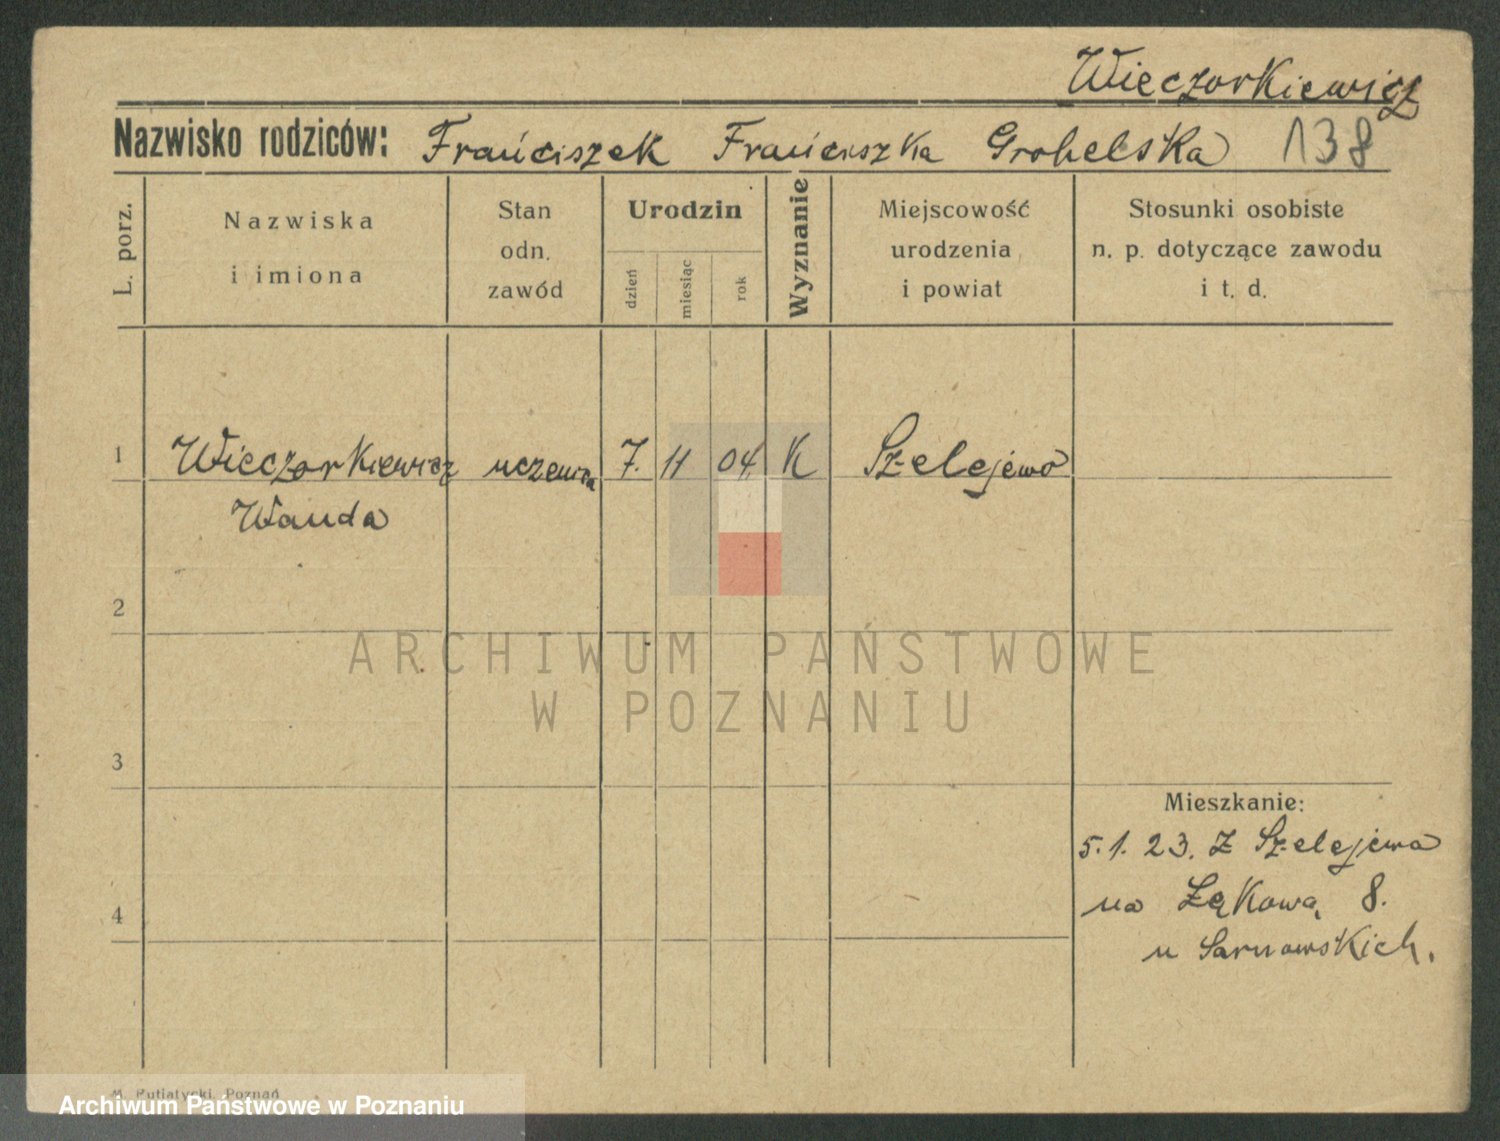 Wieczorkiewicz
Nazwisko rodziców: Franciszek Franciszka Grobelska 138
L. porz.
Nazwiska
i imiona
Stan
odn.
zawód
Urodzin
dzień
miesiąc
rok
Wyznanie
Miejscowość
urodzenia
i powiat
Stosunki osobiste
n. p. dotyczące zawodu
i t. d.
1 Wieczorkiewicz uczenica 7. 11 04. K Szelejewo
Wanda
2
ARCHIWUM PAŃSTWOWE
W POZNANIU
3
Mieszkanie:
5.1.23. Z Szelejewa
na Łąkową 8.
4
u Sarnowskich.
M. Putiatycki, Poznań
Archiwum Państwowe w Poznaniu